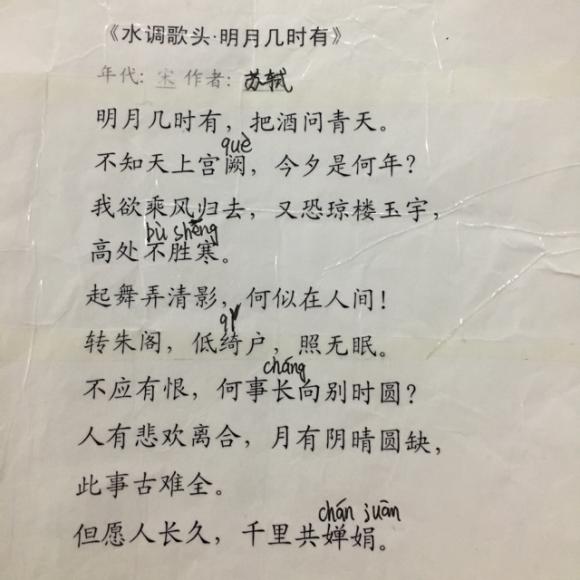 《水调歌头·明月几时有》
年代：宋 作者：苏轼
明月几时有，把酒问青天。
què
不知天上宫阙，今夕是何年？
我欲乘风归去，又恐琼楼玉宇，
bù shēng
高处不胜寒。
起舞弄清影，何似在人间！
qǐ
转朱阁，低绮户，照无眠。
cháng
不应有恨，何事长向别时圆？
人有悲欢离合，月有阴晴圆缺，
此事古难全。
chán juān
但愿人长久，千里共婵娟。